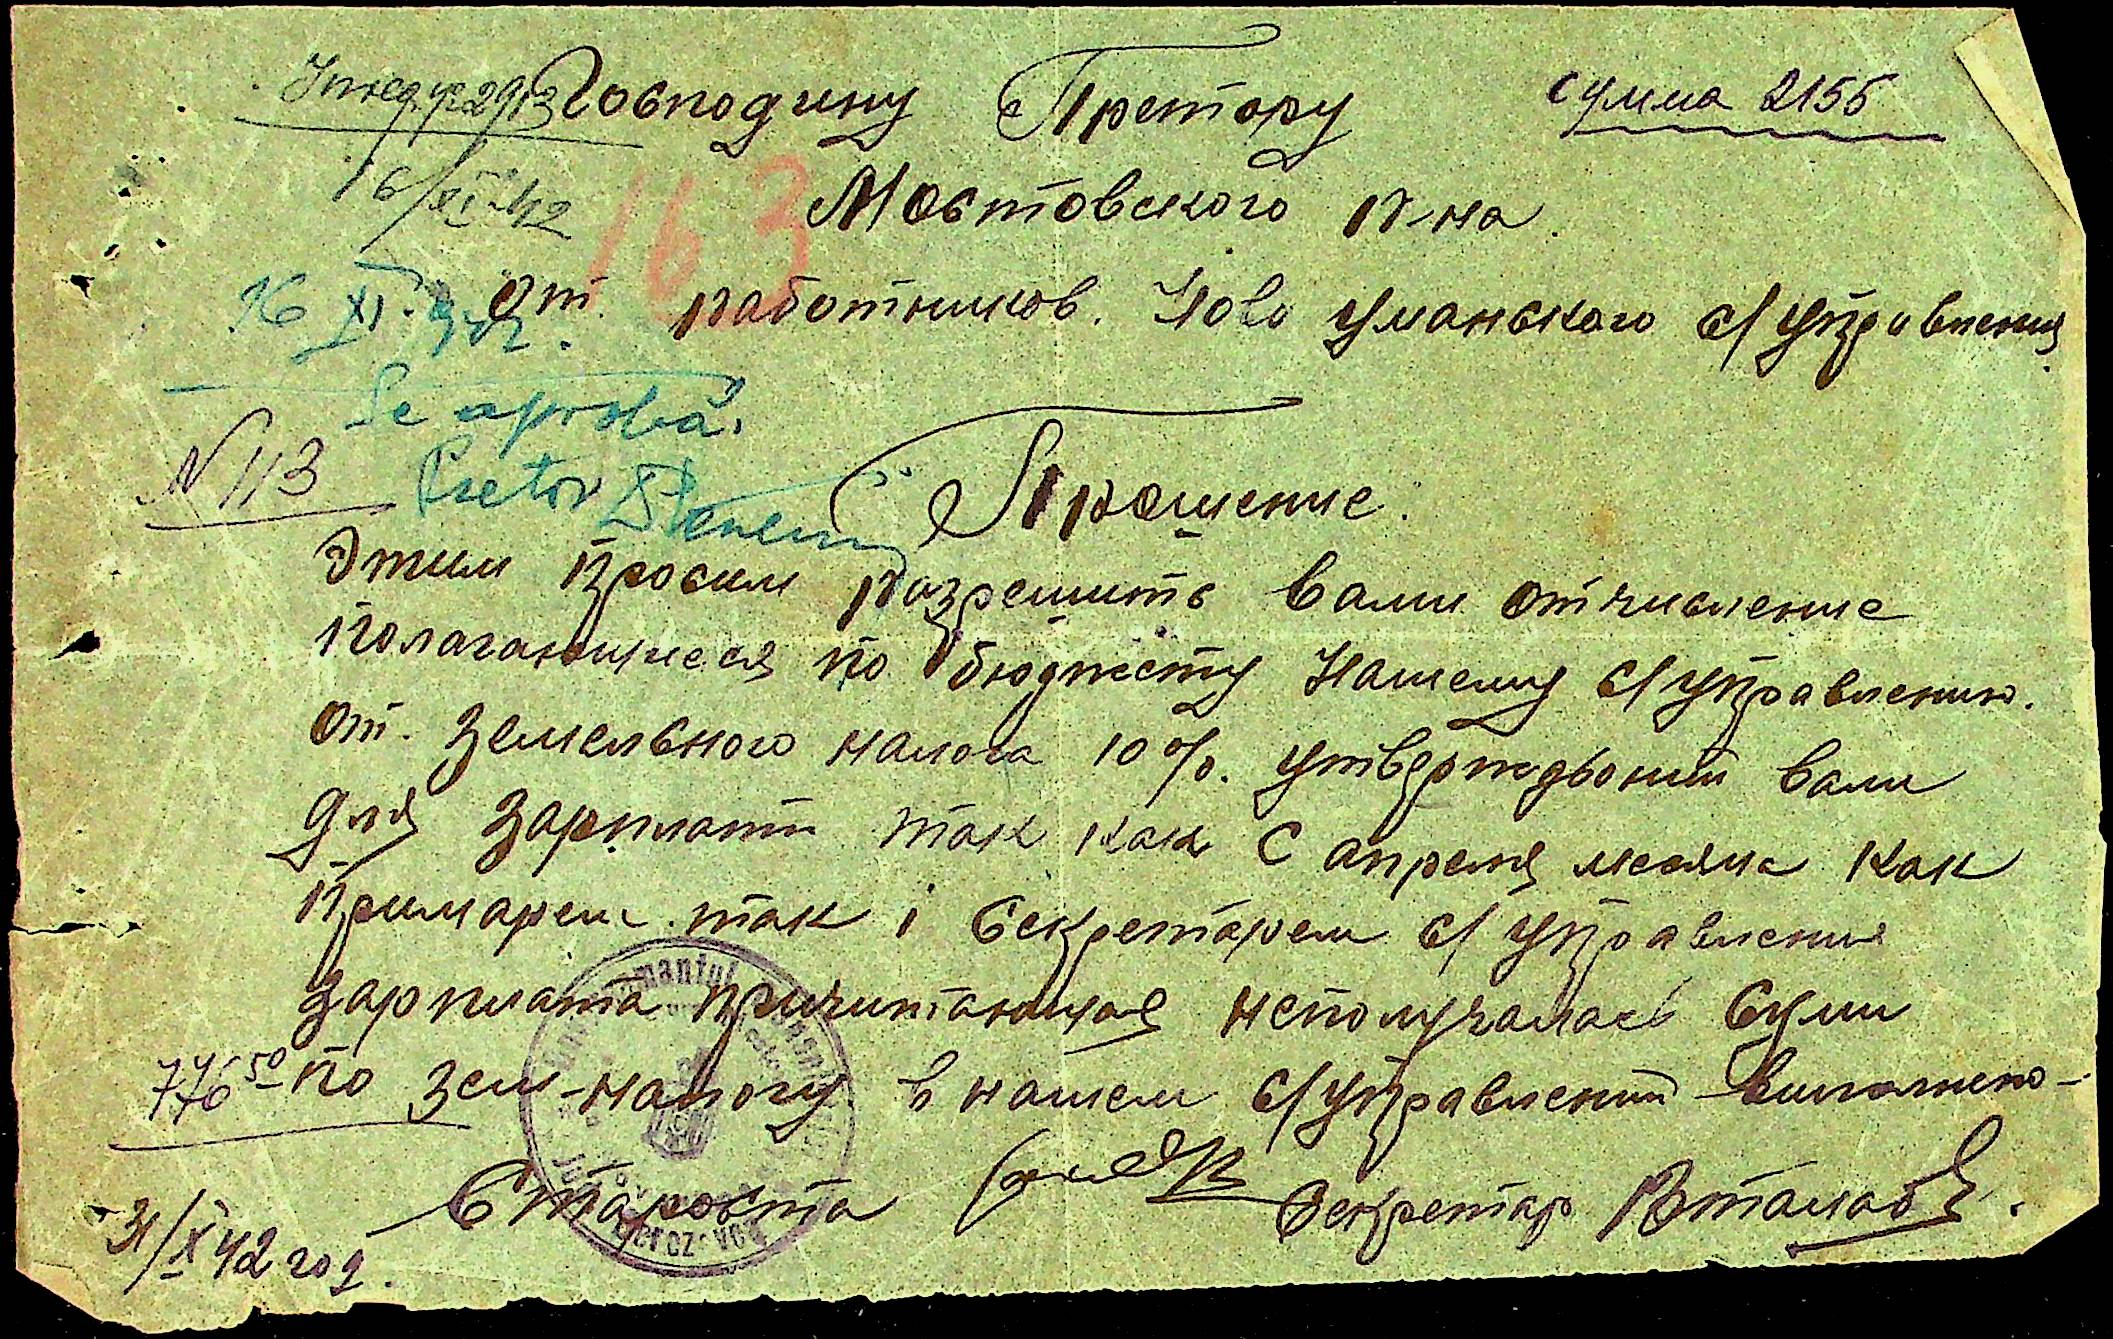 Господину Претору
сумма 2155
Мостовского р-на.
16/XI-42
163
От. работников. Ново Уманьского с/управления.
16 XI. 942.
Se aprobă.
Pretor
N 113
Прошение.
Этим просим разрешить вами отчисление
полагающиеся по бюджету нашему с/управлению.
от. земельного налога 10%. утвержденый вами
для зарплати так как с апреля месяца как
примарем так і секретарем с/управления
зарплата причитающая неполучалась суми
776 50 по зем-налогу в нашем с/управлений виполнено-
Староста
Секретар
31/X 42 год.